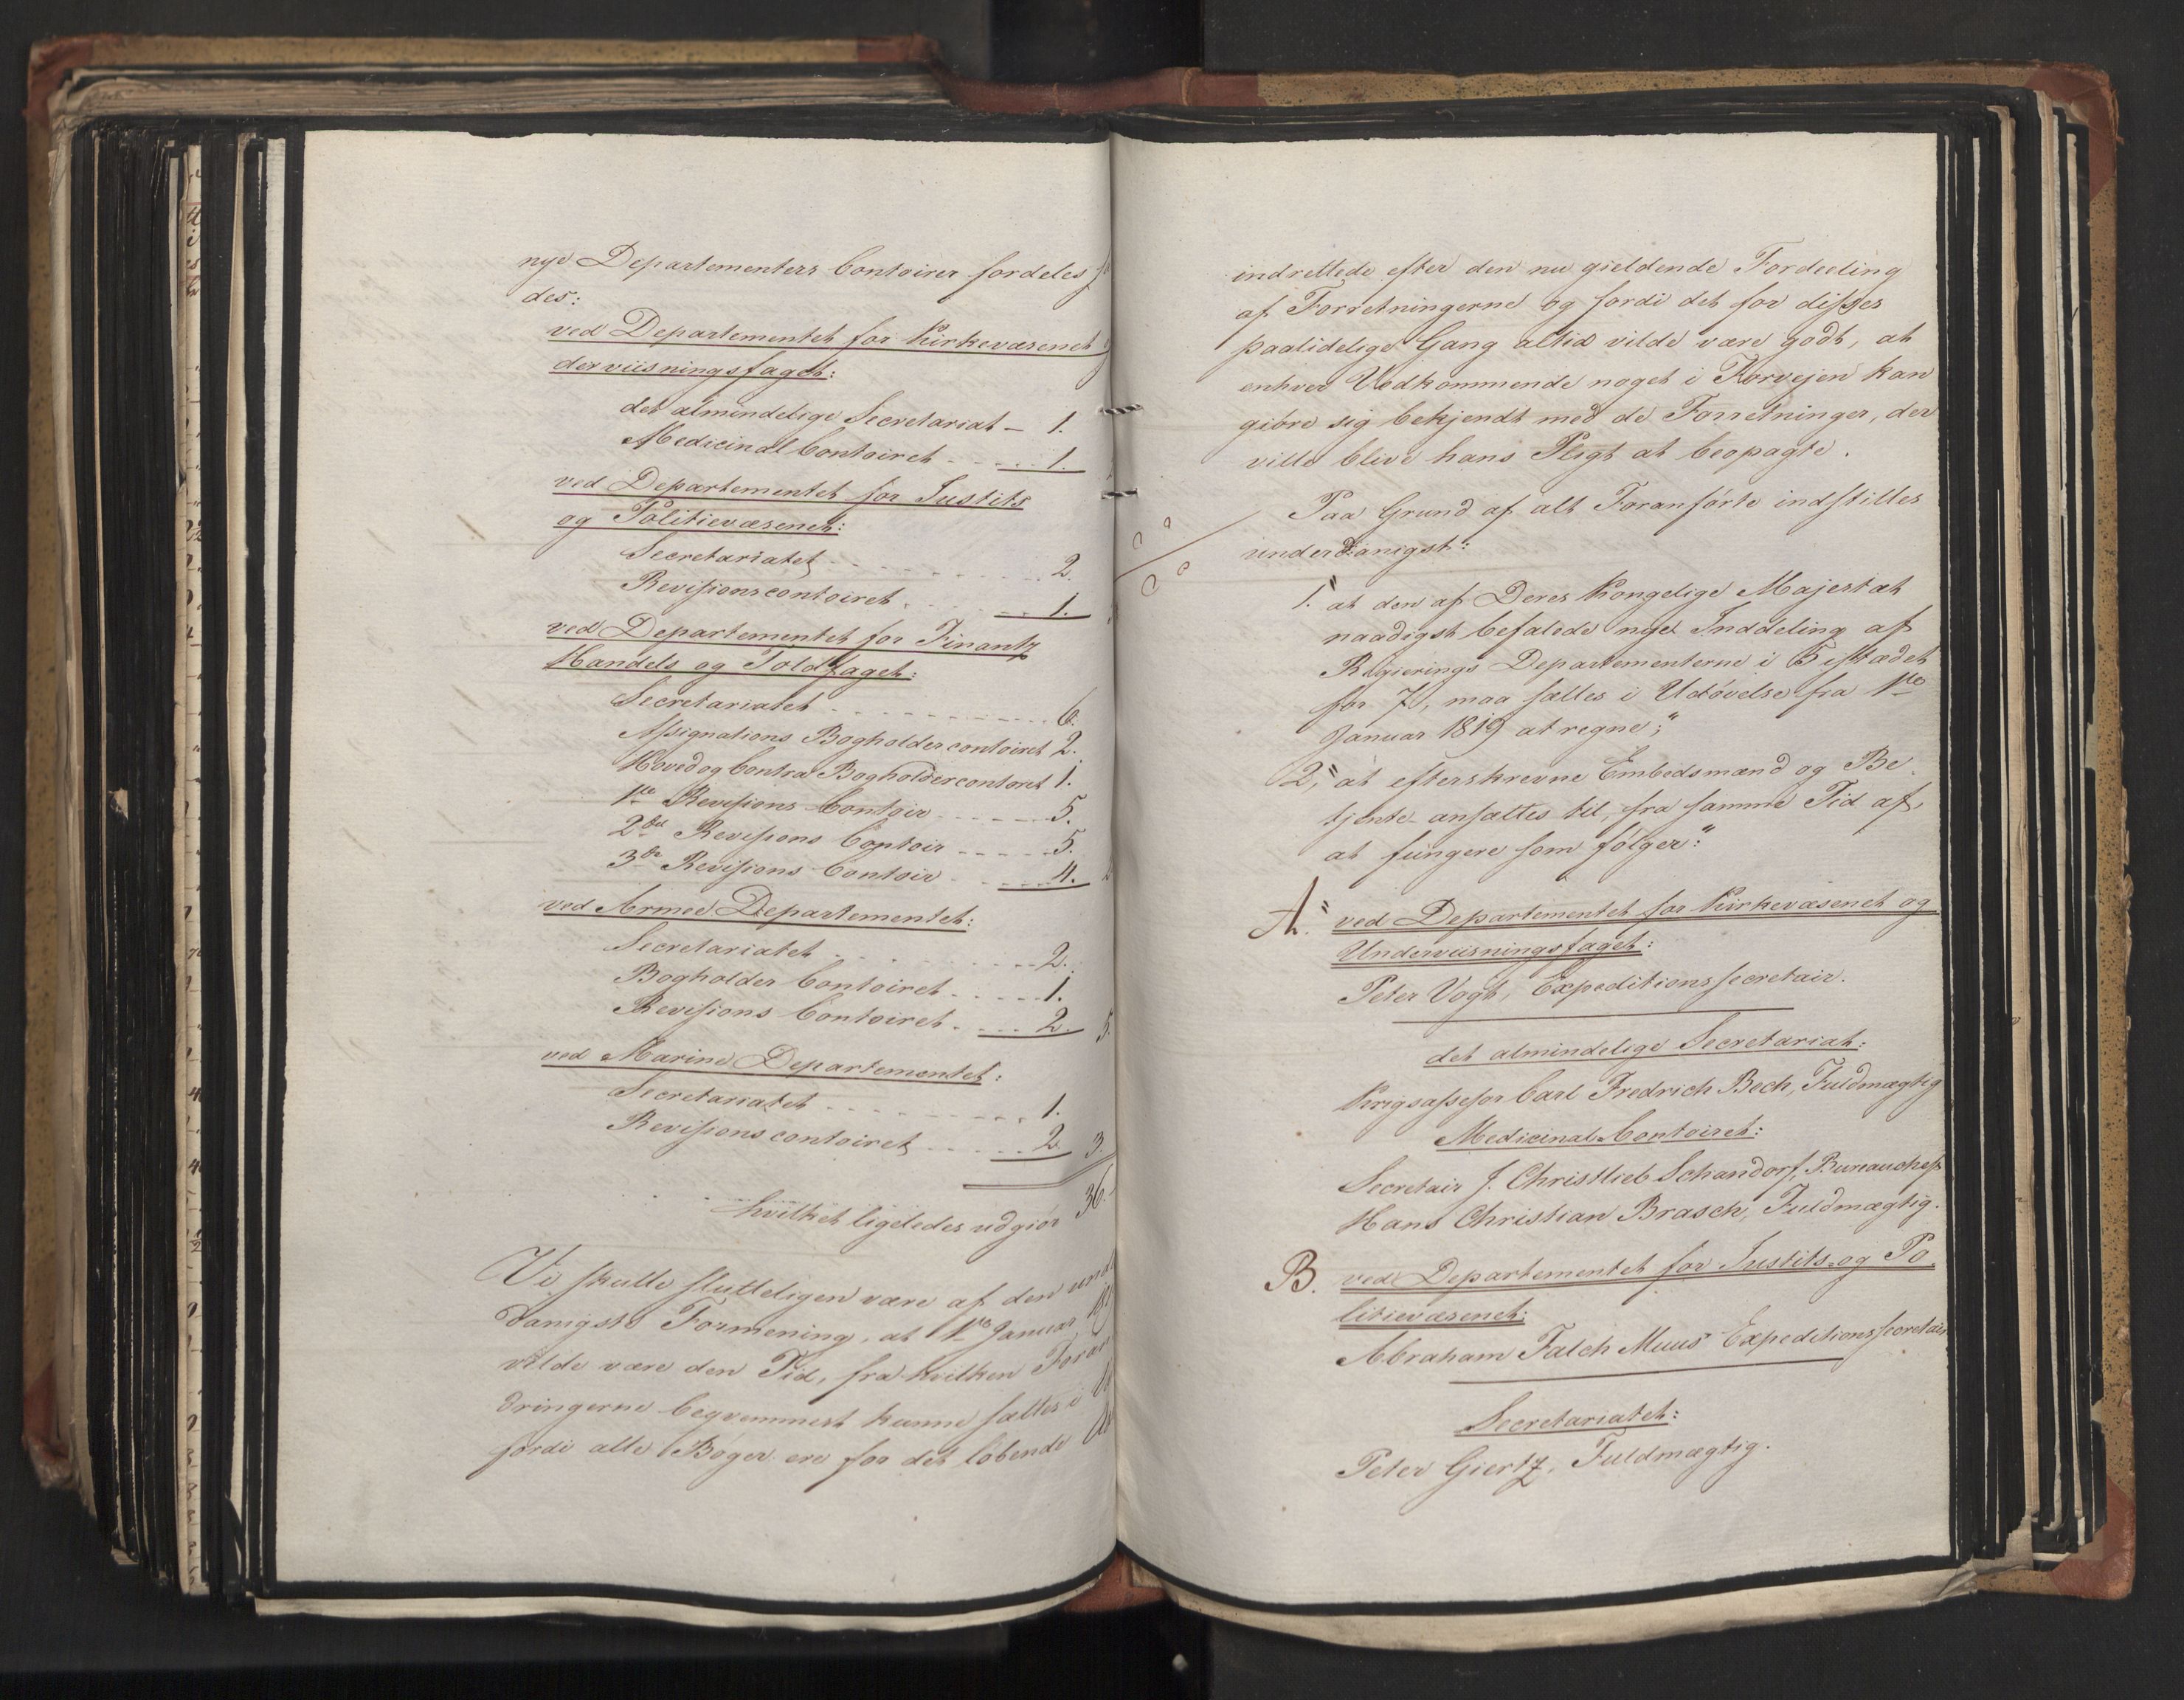 nye Departementers Contoirer fordeles
des:
ved Departementet for Kirkevæsenet
derviisningsfaget:
det almindelige Secretariat - 1.
Medicinal Contoiret - - - - 1.
ved Departementet for Justits
og Politievæsenet:
Secretariatet - - - - - - - - 2.
Revisionscontoiret - - - - 1.
ved Departementet for Finantz
Handels og Toldfaget:
Secretariatet - - - - - - - - 6.
Assignations Bogholdercontoiret 2.
Hoved og Contra Bogholdercontoret 1.
1ste Revisions Contoir - - - - - 5.
2det Revisions Contoir - - - - - 5.
3die Revisions Contoir - - - - - 4.
ved Armee Departementet:
Secretariatet - - - - - - - - 2.
Bogholder Contoiret - - - - - 1.
Revisions Contoiret - - - - 2. 5.
ved Marine Departementet:
Secretariatet - - - - - - - - 1.
Revisionscontoiret - - - - - 2. 3.
hvilket ligeledes udgiør 36.
Vi skulle slutteligen være af den und
danigste Formening, at 1ste Januar
vilde være den Tid, fra hvilken Foran
dringerne beqvemmest kunne sættes i
fordi alle Bøger ere for det løbende
indrettede efter den nu gieldende Fordeeling
af Forretningerne og fordi det for disses
paalidelige Gang altid vilde være godt, at
enhver Vedkommende noget i Forvejen kan
giøre sig bekjendt med de Forretninger, der
ville blive hans Pligt at beopagte.
Paa Grund af alt Foranførte indstilles
underdanigst:
1." at den af Deres Kongelige Majestæt
naadigst befalede nye Inddeling af
Regjerings Departementerne i 5 istædet
for 7, maa sættes i Udøvelse fra 1ste
Januar 1819 at regne;"
2," at efterskrevne Embedsmænd og Be
tjente ansættes til, fra samme Tid af,
at fungere som følger:"
A." ved Departementet for Kirkevæsenet og
Underviisningsfaget:
Peter Vogt, Expeditionssecretair.
det almindelige Secretariat:
Krigsassessor Carl Fredrich Bech, Fuldmægtig
Medicinal Contoiret:
Secretair J. Christlieb Schandorf, Bureauchef
Hans Christian Brasch, Fuldmægtig.
B. ved Departementet for Justits og Po
litievæsenet:
Abraham Falch Muus Expeditionssecretair
Secretariatet:
Peter Giertz, Fuldmægtig.